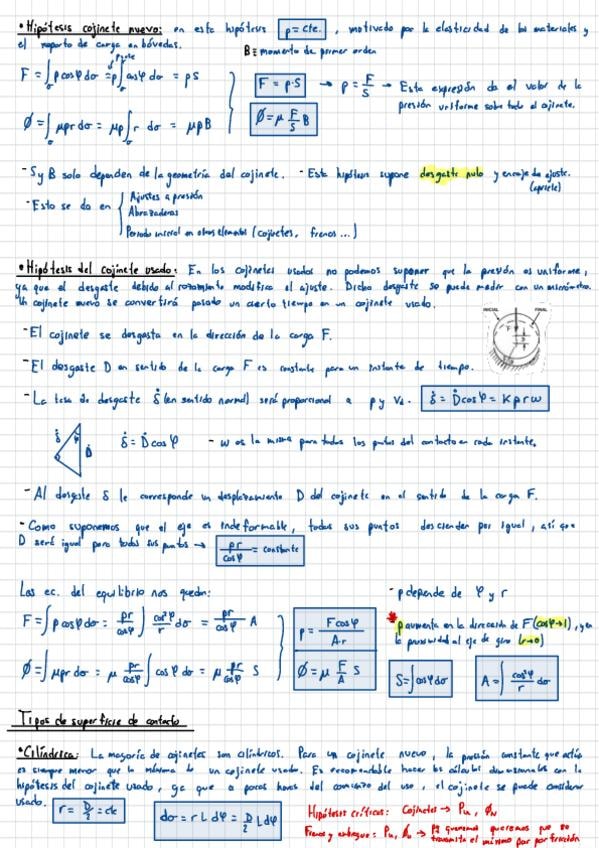 • Hipótesis cojinete nuevo: en esta hipótesis p = cte. , motivado por la elasticidad de los materiales y
el reparto de carga en bóvedas. B ≡ momento de primer orden
F = ∫ p cosφ dσ = p ∫ cosφ dσ = pS
F = p·S → p = F/S → Esta expresión da el valor de la
presión uniforme sobre todo el cojinete.
Ø = ∫ μpr dσ = μp ∫ r dσ = μpB
Ø = μ F/S B
- S y B solo dependen de la geometría del cojinete. - Esta hipótesis supone desgaste nulo y encaje de ajuste.
(apriete)
- Esto se da en
Ajustes a presión
Abrazaderas
Periodo inicial en otros elementos (cojinetes, frenos...)
• Hipótesis del cojinete usado: En los cojinetes usados no podemos suponer que la presión es uniforme,
ya que el desgaste debido al rozamiento modifica el ajuste. Dicho desgaste se puede medir con un micrómetro.
Un cojinete nuevo se convertirá pasado un cierto tiempo en un cojinete usado.
INICIAL FINAL
- El cojinete se desgasta en la dirección de la carga F.
- El desgaste D en sentido de la carga F es constante para un instante de tiempo.
- La tasa de desgaste δ̇ (en sentido normal) será proporcional a p y
δ̇ = Ḋcosφ = K p r ω
δ̇ φ Ḋ
δ̇ = Ḋ cosφ - ω es la misma para todos los puntos del contacto en cada instante.
- Al desgaste δ le corresponde un desplazamiento D del cojinete en el sentido de la carga F.
- Como suponemos que el eje es indeformable, todos sus puntos descienden por igual, así que
D será igual para todos sus puntos → pr/cosφ = constante
Las ec. del equilibrio nos quedan: - p depende de φ y r
F = ∫ p cosφ dσ = pr/cosφ ∫ cos²φ/r dσ = pr/cosφ A
p = F cosφ / A·r
* p aumenta en la dirección de F (cosφ→1), y en
la proximidad al eje de giro (r→0)
Ø = ∫ μpr dσ = μ pr/cosφ ∫ cosφ dσ = μ pr/cosφ S
Ø = μ F/A S
S = ∫ cosφ dσ
A = ∫ cos²φ/r dσ
Tipos de superficie de contacto
• Cilíndrica: La mayoría de cojinetes son cilíndricos. Para un cojinete nuevo, la presión constante que actúa
es siempre menor que la máxima de un cojinete usado. Es recomendable hacer los cálculos dimensionales con la
hipótesis del cojinete usado, ya que a pocas horas del comienzo del uso, el cojinete se puede considerar
usado.
r = D/2 = cte
dσ = r L dφ = D/2 L dφ
Hipótesis críticas: Cojinetes →
Frenos y embrague: queremos que se
transmita el máximo par por fricción